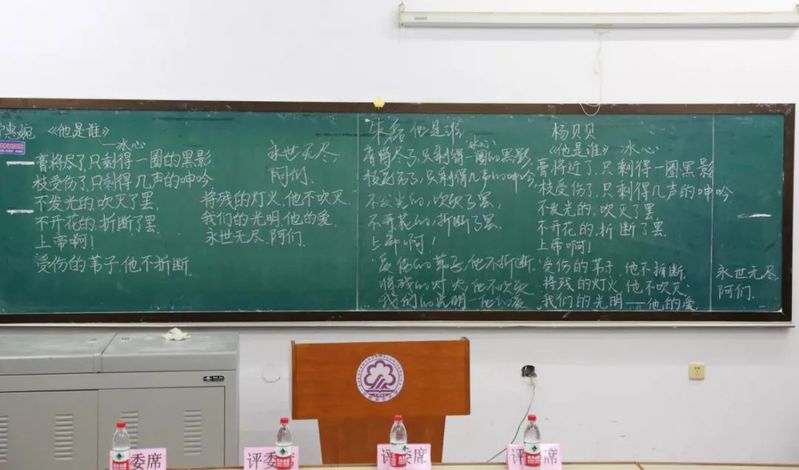 惠妮 《他是谁》
——冰心
膏将尽了,只剩得一圈的黑影
枝受伤了,只剩得几声的呻吟
不发光的,吹灭了罢
不开花的,折断了罢
上帝啊!
受伤的苇子,他不折断
永世无尽
阿们.
将残的灯火,他不吹灭
我们的光明,他的爱,
永世无尽,阿们.
朱磊 他是谁
冰心
膏将尽了,只剩得一圈的黑影
枝受伤了,只剩得几声的呻吟
不发光的,吹灭了罢
不开花的,折断了罢
上帝啊!
受伤的苇子,他不折断
将残的灯火,他不吹灭
我们的光明——他的爱
杨贝贝
《他是谁》 冰心
膏将近了,只剩得一圈黑影
枝受伤了,只剩得几声的呻吟
不发光的,吹灭了罢
不开花的,折断了罢
上帝啊!
受伤的苇子,他不折断.
将残的灯火,他不吹灭.
我们的光明——他的爱
永世无尽
阿们.
委席
评委
评委席
评 席